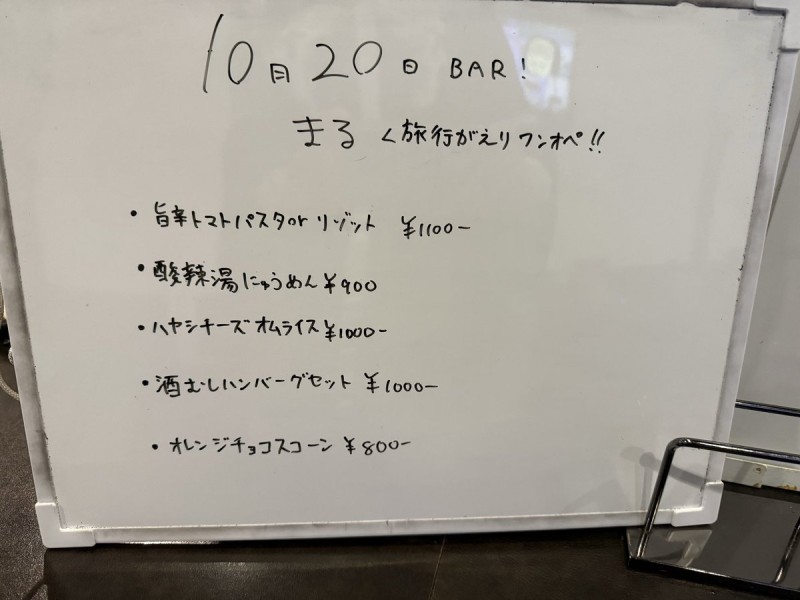 10月20日 BAR!
まる <旅行がえりワンオペ!!
・旨辛トマトパスタor リゾット ¥1100-
・酸辣湯にゅうめん¥900
・ハヤシチーズオムライス¥1000-
・酒むしハンバーグセット ¥1000-
・オレンジチョコスコーン ¥800-